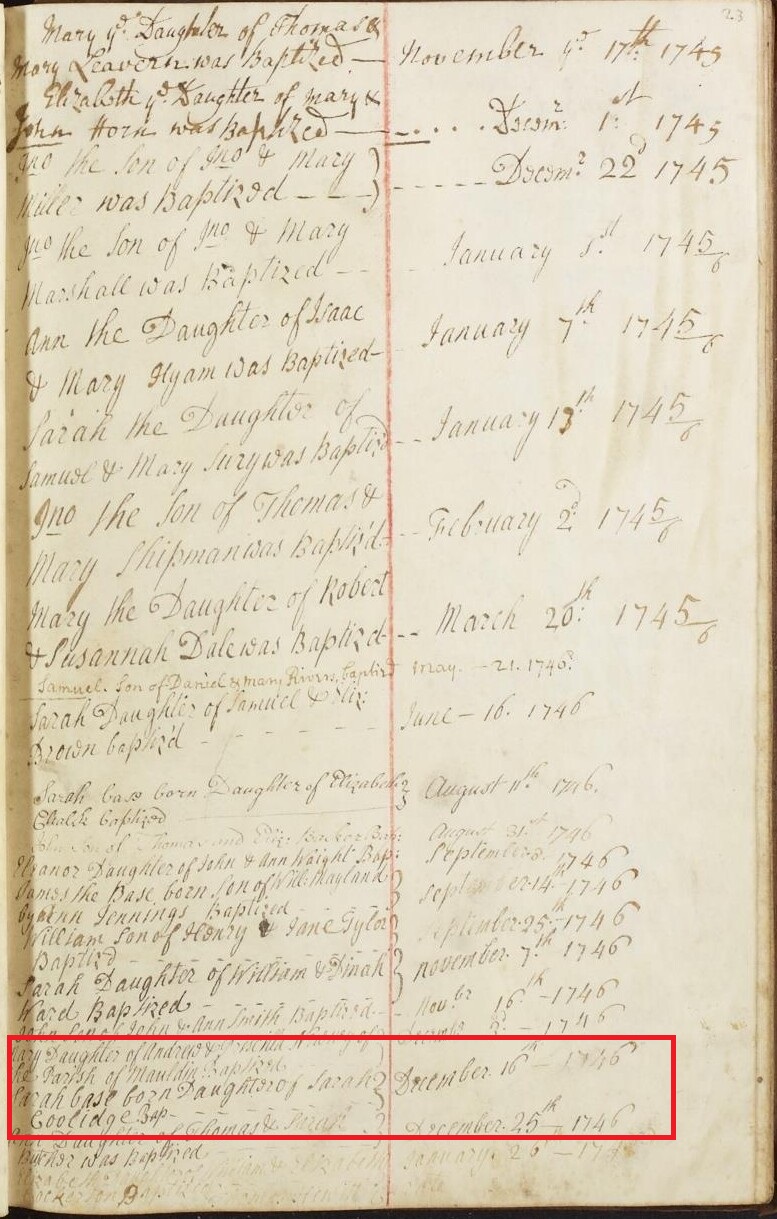 23
Mary yᵉ Daughter of Thomas &
Mary Leavern was Baptized — November yᵉ 17th 1745
Elizabeth yᵉ Daughter of mary &
John Horn was Baptized — Decemr: 1st 1745
Jno the Son of Jno & Mary
Miller was Baptized — Decemr 22d 1745
Jno the Son of Jno & Mary
Marshall was Baptized — January 1st 1745/6
Ann the Daughter of Isaac
& Mary Hyam was Baptized — January 7th 1745/6
Sarah the Daughter of
Samuel & Mary Sury was Baptizd -- January 13th 1745/6
Jno the Son of Thomas &
Mary Shipman was Baptiz'd -- February 2d 1745/6
Mary the Daughter of Robert
& Susannah Dale was Baptizd -- March 20th: 1745/6
Samuel Son of Daniel & mary Rivers, baptizd may. — 21. 1746
Sarah Daughter of Samuel & Eliz:
Brown baptiz'd - June — 16. 1746
Sarah base born Daughter of Elizabeth } August 11th 1746.
Chalk baptized
John Son of Thomas and Eliz: Barker Bap: August 31st 1746
Eleanor Daughter of John & Ann Waight Bap: September 1746
James the Base born Son of Will: Mayland } September 14th 1746
by Ann Jennings Baptized
William Son of Henry & Jane Tylor } September 25th 1746
Baptizd
Sarah Daughter of William & Dinah } november. 7th 1746
Ward Baptized
John Son of John & Ann Smith Baptized - Novbr 16th - 1746
Mary Daughter of Andrew & of
the Parish of Mauldin Baptized
Sarah base born Daughter of Sarah } December. 16th - 1746
Coolidge Bap —
Ann Daughter of Thomas & Sarah } December. 25th 1746
was Baptized January. 26
Elizabeth Elizabeth
Baptiz